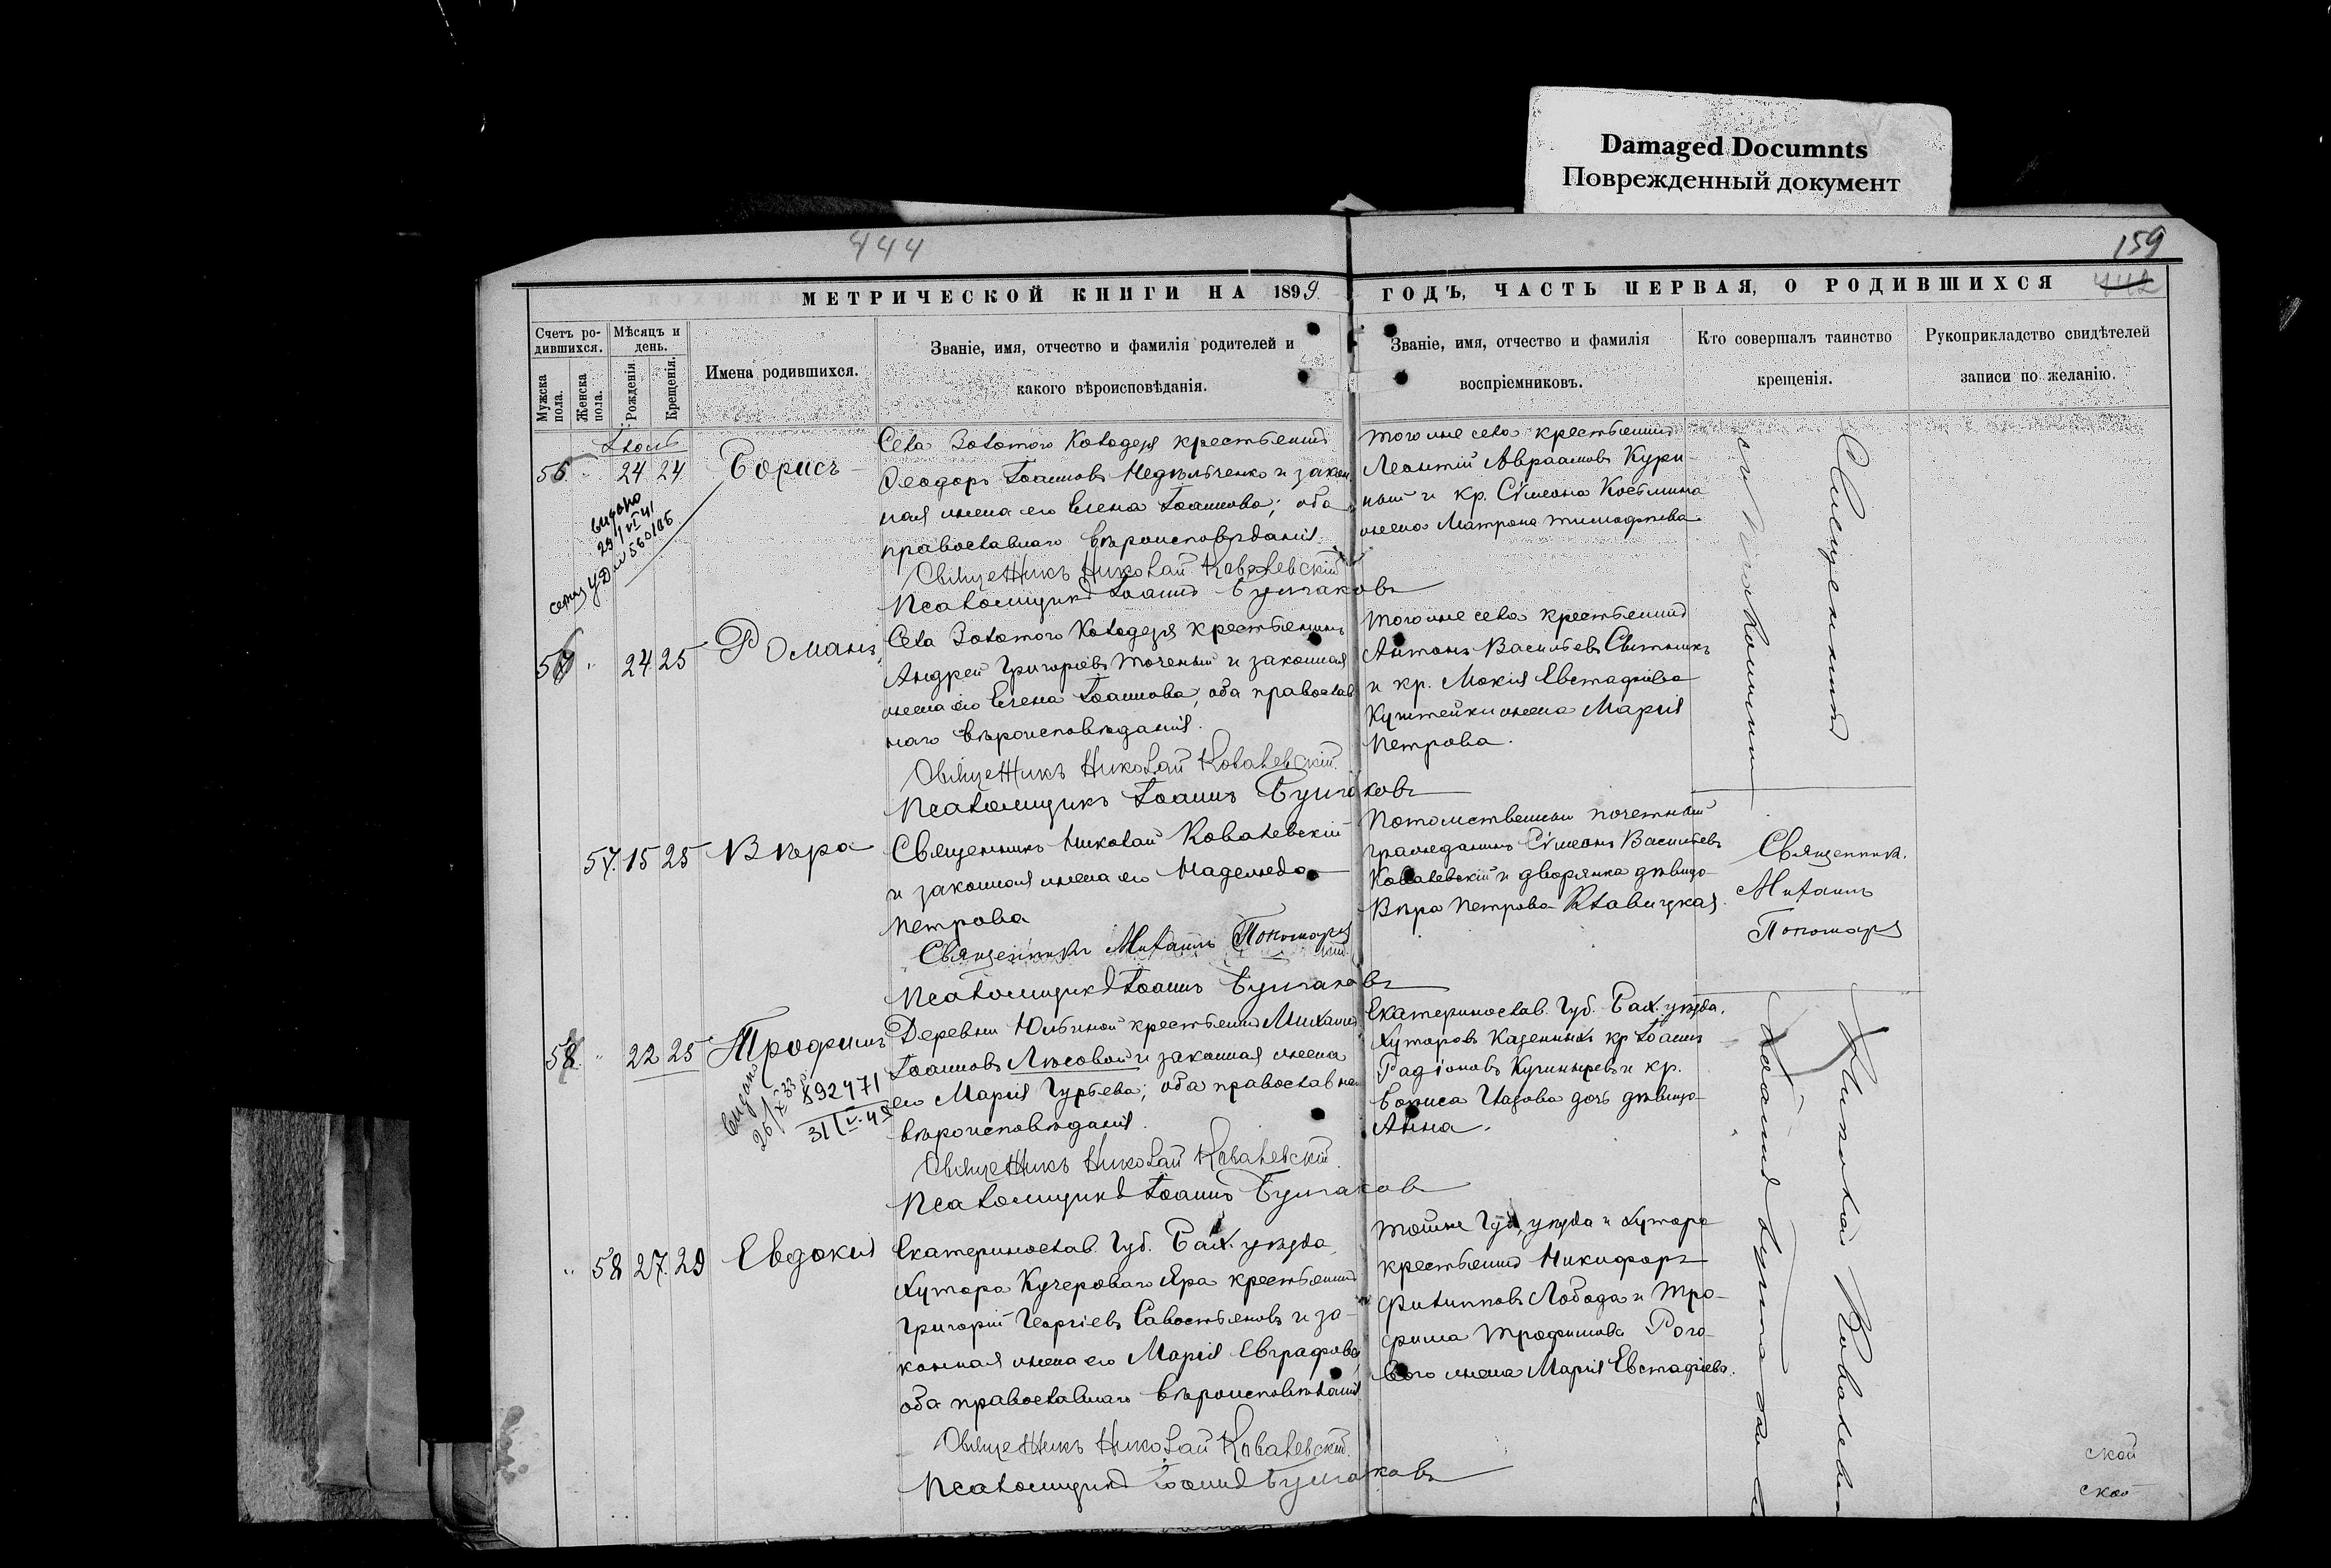 Damaged Documnts
Поврежденный документ
444
159
442
МЕТРИЧЕСКОЙ КНИГИ НА 1899 ГОДЪ, ЧАСТЬ ПЕРВАЯ, О РОДИВШИХСЯ
Счетъ ро-
дившихся.
Мужска пола.
Женска пола.
Мѣсяцъ и
день.
Рожденія
Крещенія.
Имена родившихся.
Званіе, имя, отчество и фамилія родителей и
какого вѣроисповѣданія.
Званіе, имя, отчество и фамилія
воспріемниковъ.
Кто совершалъ таинство
крещенія.
Рукоприкладство свидѣтелей
записи по желанію.
Іюль
56 " 24 24 Борисъ
Села Золотого Колодезя крестьянинъ
Ѳеодоръ Іоанновъ Недѣльченко и закон
ная жена его Елена Іоаннова; оба
православнаго вѣроисповѣданія.
Священникъ Николай Ковалевскій
Псаломщикъ Іоаннъ Булгаковъ
того же села крестьянинъ
Леонтій Авраамовъ Кури-
ный и кр. Сѵмеона Костмина
жена Матрона Тимофеева.
видано
29/VI 41
УД № 560106
57 " 24 25 Романъ
Села Золотого Колодезя крестьянинъ
Андрей Григорьевъ Точеный и законная
жена его Елена Іоаннова, оба православ
наго вѣроисповѣданія.
Священникъ Николай Ковалевскій
Псаломщикъ Іоаннъ Булгаковъ
того же села крестьянинъ
Антонъ Васильевъ Свитникъ
и кр. Мокія Евстафіева
жена Марія
Петрова.
57. 15 25 Вѣра
Священникъ Николай Ковалевскій
и законная жена его Надежда
Петрова
Священникъ Михаилъ Пономарев
Псаломщикъ Іоаннъ Булгаковъ
Потомственный почетный
гражданинъ Сѵмеонъ Васильевъ
Ковалевскій и дворянка дѣвица
Вѣра Петрова Клавицкая.
Священникъ
Михаилъ
Пономарев
58 " 22 25 Трофимъ
Деревни Юльиной крестьянинъ Михаилъ
Іоанновъ Лѣсовой и законная жена
его Марія Гурьева; оба православна
вѣроисповѣданія.
Священникъ Николай Ковалевскій
Псаломщикъ Іоаннъ Булгаковъ
Екатеринослав. Губ. Бах. уѣзда,
Хуторовъ Казенныхъ кр Іоаннъ
Радіоновъ Кучинъ и кр.
Бориса дочь дѣвица
Анна.
Видано
26/X 33 р.
892471
31/V-48
" 58 27. 29 Евдокія
Екатеринослав. Губ. Бах. уѣзда,
Хутора Кучероваго Яра крестьянинъ
Григорій Георгіевъ Савостьяновъ и за-
конная жена его Марія Евграфова,
оба православнаго вѣроисповѣданія
Священникъ Николай Ковалевскій
Псаломщикъ Іоаннъ Булгаковъ
тойже Губ, уѣзда и Хутора
крестьянинъ Никифоръ
Филипповъ Лобода и Тро-
фима Трофимова Рого-
вого жена Марія Евстафіева.
Священникъ
Николай Ковалевскій
съ псаломщикомъ
Іоанномъ Булгаковымъ
ской
ской